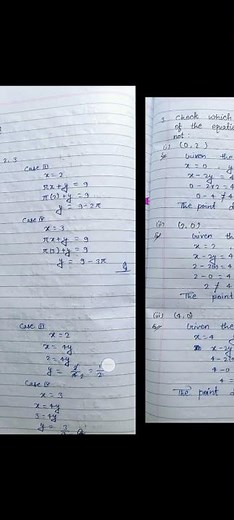 2, 3
Case III
x = 2
πx + y = 9
π(2) + y = 9
y = 9 - 2π
Case IV
x = 3
πx + y = 9
π(3) + y = 9
y = 9 - 3π
Case III
x = 2
x = 4y
2 = 4y
Case IV
x = 3
x = 4y
3 = 4y
3 Check which
of the equatio
not:
(i) (0, 2)
Given the
x = 0
x - 2y = 4
0 - 4 ≠ 4
The point d
(ii) (2, 0)
Given th
x = 2
x - 2y = 4
2 - 0 = 4
2 ≠ 4
The point
(iii) (4, 0)
Given the
x = 4
x - 2y
4 - 0
4 =
The point d